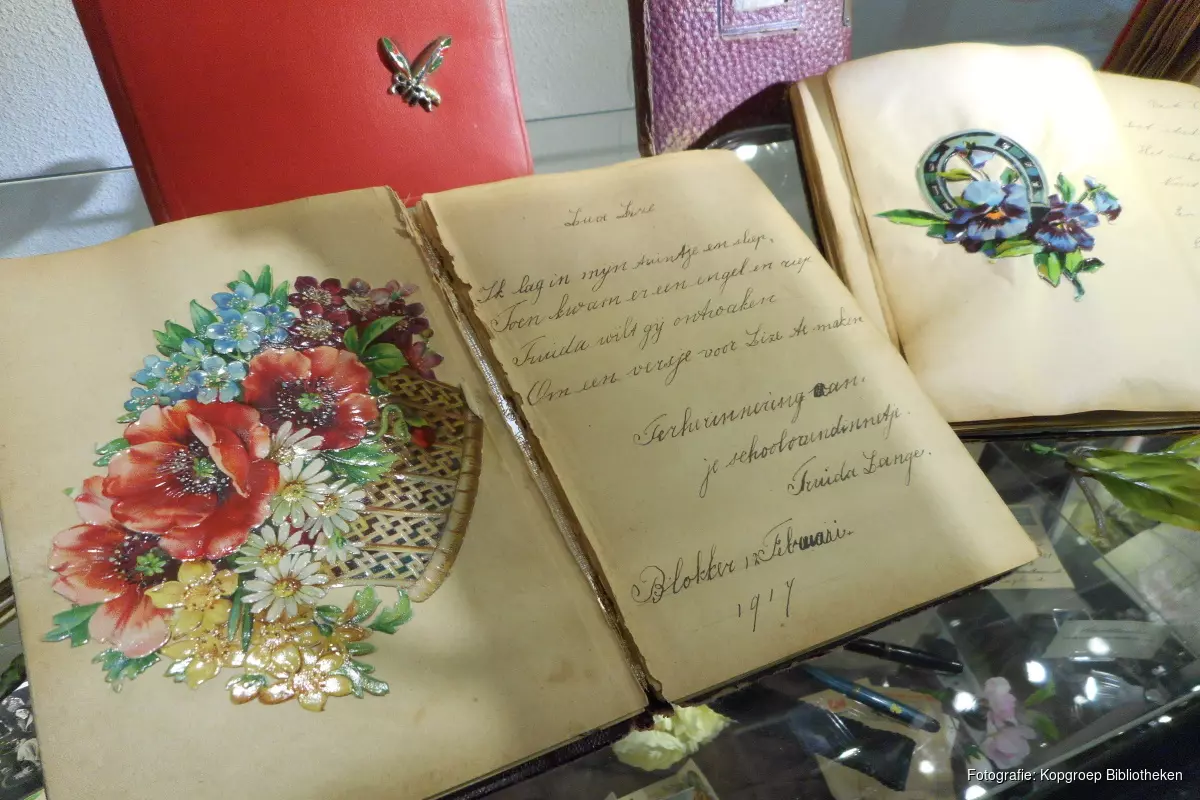 Lieve Lize
Ik lag in mijn tuintje en sliep,
Toen kwam er een engel en riep
Truida wilt gij ontwaken
Om een versje voor Lize te maken
Terherinnering aan.
je schoolvriendinnetje.
Truida Lange.
Blokker 12 Februari.
1917
Fotografie: Kopgroep Bibliotheken